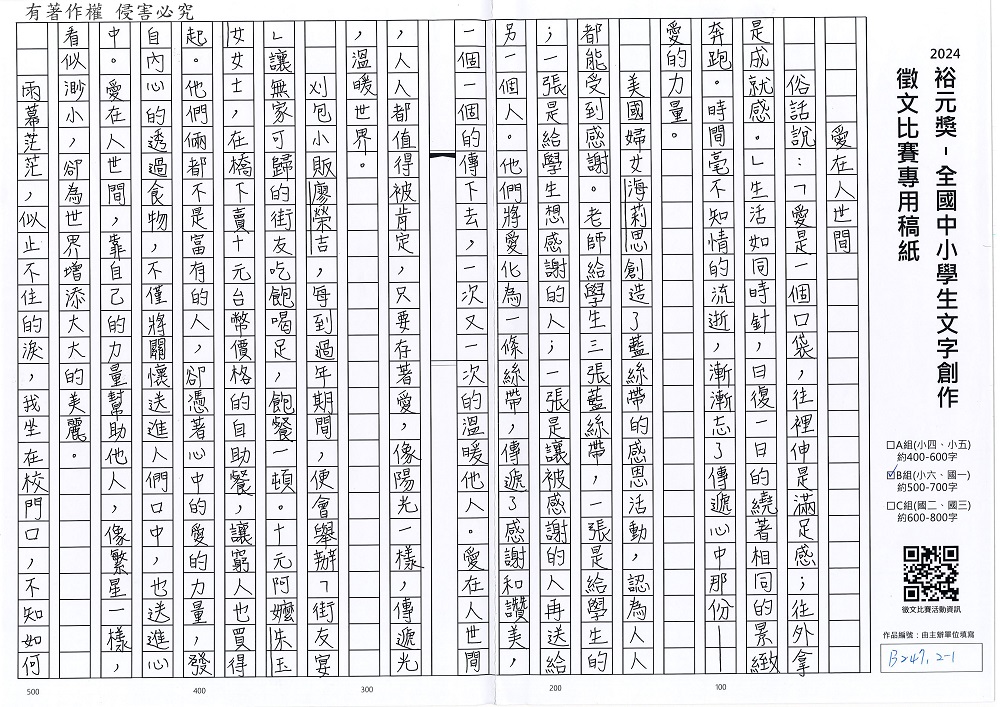 有著作權 侵害必究
2024
裕元獎-全國中小學生文字創作
徵文比賽專用稿紙
□A組(小四、小五)
約400-600字
☑B組(小六、國一)
約500-700字
□C組(國二、國三)
約600-800字
徵文比賽活動資訊
作品編號：由主辦單位填寫
B247.2-1
愛在人世間
俗話說：「愛是一個口袋，往裡伸是滿足感；往外拿
是成就感。」生活如同時針，日復一日的繞著相同的景緻
奔跑。時間毫不知情的流逝，漸漸忘了傳遞心中那份—
愛的力量。
美國婦女海莉思創造了藍絲帶的感恩活動，認為人人
都能受到感謝。老師給學生三張藍絲帶，一張是給學生的
；一張是給學生想感謝的人；一張是讓被感謝的人再送給
另一個人。他們將愛化為一條絲帶，傳遞了感謝和讚美，
一個一個的傳下去，一次又一次的溫暖他人。愛在人世間
，人人都值得被肯定，只要存著愛，像陽光一樣，傳遞光
，溫暖世界。
刈包小販廖榮吉，每到過年期間，便會舉辦「街友宴
」讓無家可歸的街友吃飽喝足，飽餐一頓。十元阿嬤朱玉
女女士，在橋下賣十元台幣價格的自助餐，讓窮人也買得
起。他們倆都不是富有的人，卻憑著心中的愛的力量，發
自內心的透過食物，不僅將關懷送進人們口中，也送進心
中。愛在人世間，靠自己的力量幫助他人，像繁星一樣，
看似渺小，卻為世界增添大大的美麗。
雨幕茫茫，似止不住的淚，我坐在校門口，不知如何
100
200
300
400
500